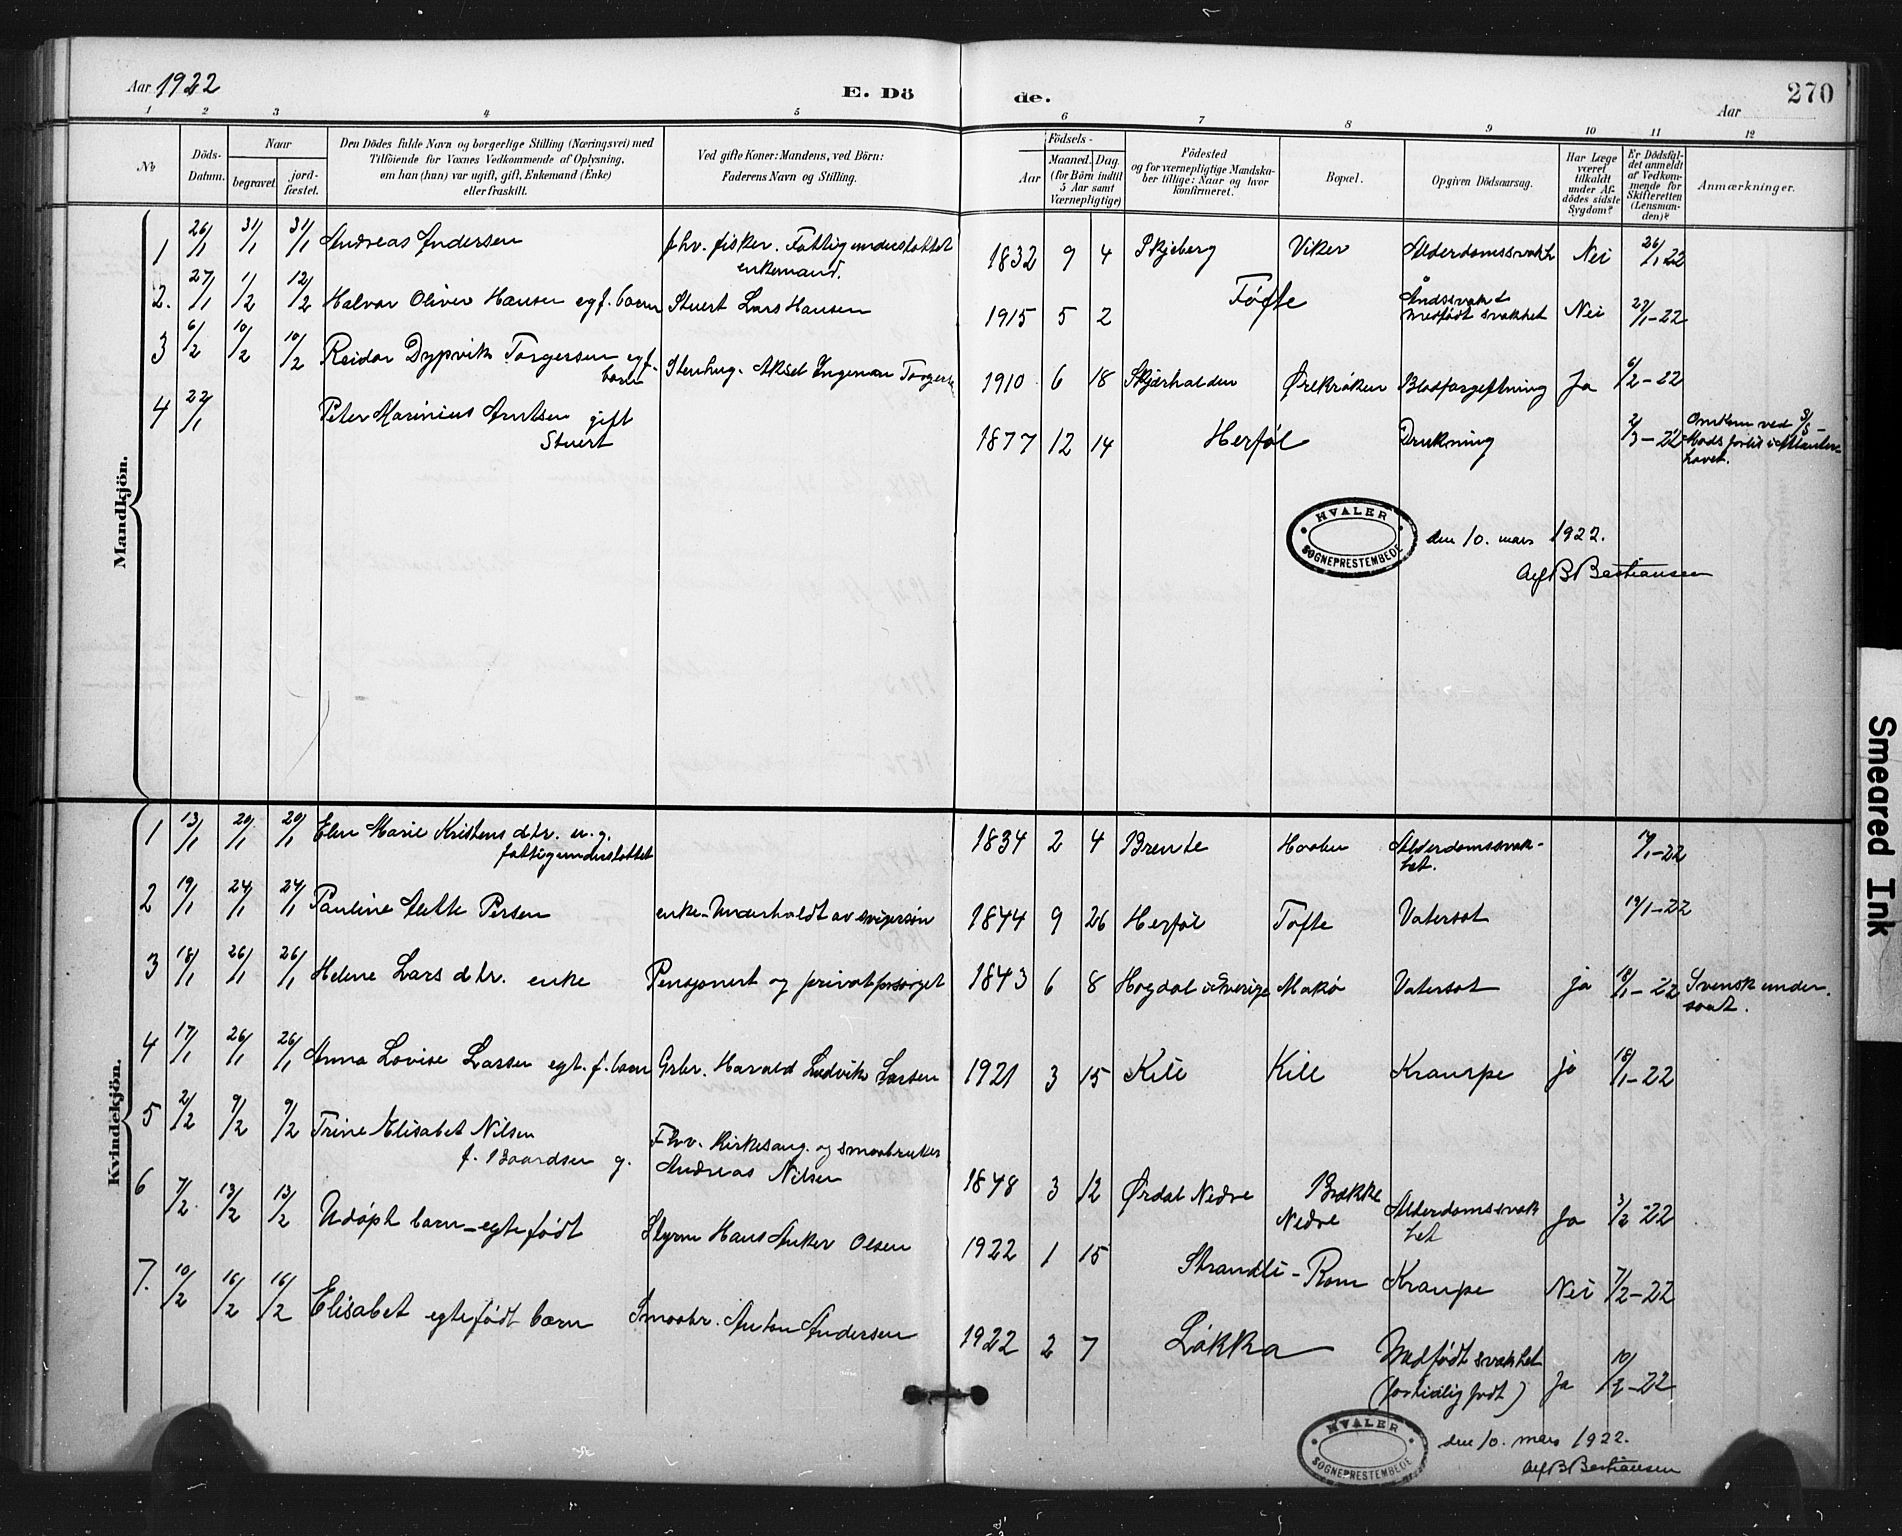 Aar 1922
E. Dö
de.
Aar
270
1 2 3 4 5 6 7 8 9 10 11 12
No
Döds-Datum.
Naar
begravet.
jord-fæstet.
Den Dödes fulde Navn og borgerlige Stilling (Næringsvei) med
Tilföiende for Voxnes Vedkommende af Oplysning,
om han (hun) var ugift, gift, Enkemand (Enke)
eller fraskilt.
Ved gifte Koner: Mandens, ved Börn:
Faderens Navn og Stilling.
Födsels-
Aar
Maaned. Dag.
(for Börn indtil
5 Aar samt
Værnepligtige)
Födested
og for værnepligtige Mandska-
ber tillige: Naar og hvor
konfirmeret.
Bopæl.
Opgiven Dödsaarsag.
Har Læge
været
tilkaldt
under Af-
dödes sidste
Sygdom?
Er Dödsfal-
det anmeldt
af Vedkom-
mende for
Skifteretten
(Lensman-
den)?
Anmærkninger.
Mandkjön.
1 26/1 31/1 31/1 Andreas Andersen fhv. fisker. Fattigunderstøttet enkemand. 1832 9 4 Skjeberg Viker Alderdomssvakh Nei 26/1 22
2. 27/1 1/2 12/2 Halvor Oliver Hansen egf. barn Stuert Lars Hansen 1915 5 2 Tofte Åndssvak + medfødt svakhet Nei 27/1-22
3 6/2 10/2 10/2 Reidar Dypvik Torgersen egf. barn Stenhug. Aksel Ingeman Torgersen 1910 6 18 Skjærhalden Ørekroken Blodforgiftning Ja 6/2-22
4 22/1 Peter Marinius Arntsen gift Stuert 1877 12 14 Herføl Drukning 2/3-22 Omkom ved S/S - Mods forlis i Atlanter-havet.
HVALER SOGNEPRESTEMBEDE
den 10. mars 1922.
Alf B Bastiansen
Kvindekjön.
1 13/1 20/1 20/1 Elen Marie Kristens dtr. u.g. fattigunderstøttet 1834 2 4 Brente Haabu Alderdomssvak-het. 14/1-22
2 19/1 24/1 24/1 Pauline Mette Persen enke-Underholdt av svigersøn 1844 9 26 Herføl Tofte Vatersot 19/1-22
3 18/1 26/1 26/1 Helene Lars dtr. enke Pensjonert og privatforsørget 1843 6 8 Hogdal i Sverige Makø Vatersot ja 18/1-22 Svensk under-saat.
4 17/1 26/1 26/1 Anna Lovise Larsen egt. f. barn Grbr. Harald Ludvik Larsen 1921 3 15 Kile Kile Krampe ja 18/1-22
5 2/2 9/2 9/2 Trine Elisabet Nilsen f. Baardsen g. Fhv. Kirkesang. og smaabruker Andreas Nilsen 1848 3 12 Ørdal Nedre Brække Nedre Alderdomssvak het Ja 3/2-22
6 7/2 13/2 13/2 Udøpt barn - egtefødt Styrm Hans Anker Olsen 1922 1 15 Strandli - Rom Krampe Nei 7/2-22
7. 10/2 16/2 16/2 Elisabet egtefødt barn Smaabr. Anton Andersen 1922 2 7 Løkka Medfødt svakhet (fortidlig født) Ja 10/2-22
HVALER SOGNEPRESTEMBEDE
den 10. mars 1922.
Alf B Bastiansen
Smeared Ink